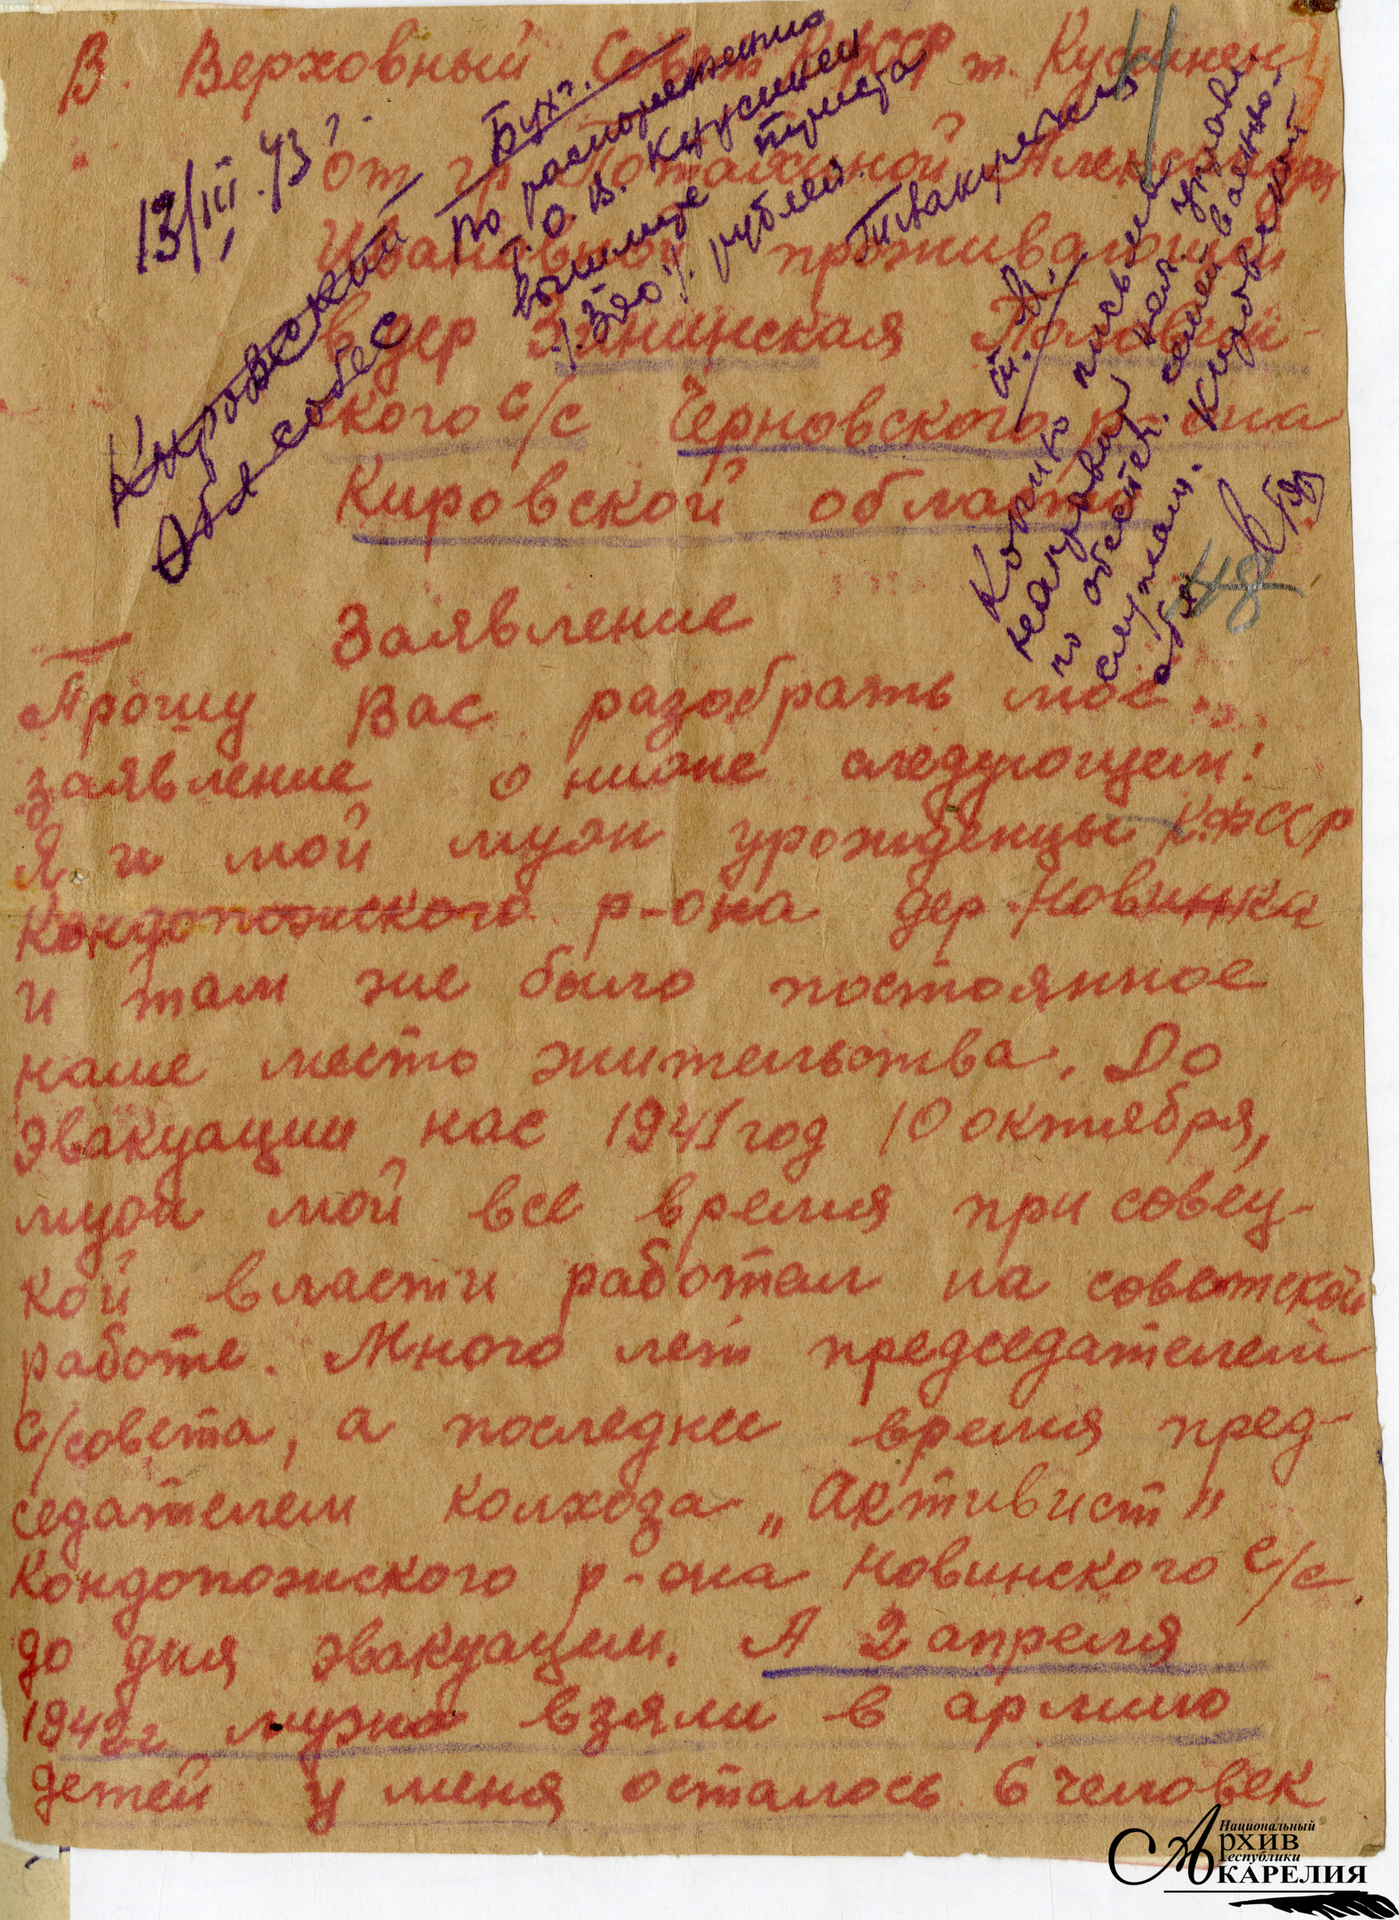 В. Верховный Совет КФССР т. Куусинен
от гр. Потахиной Александры
Ивановны проживающей
в дер Зянинская
кого с/с Черновского р-она
Кировской области
13/III.43 г.
Кировский
Облсобес
Бухг.
По распоряжению
т. О. В. Куусинен
вышлите триста
/300/ рублей.
Заявление
Прошу Вас разобрать мое
заявление о ниже следующем:
Я и мой муж урожденцы К.ФССР
Кондопожского р-она дер Новинка
и там же было постоянное
наше место жительства. До
эвакуации нас 1941 год 10 октября,
муж мой все время при совец-
кой власти работал на советской
работе. Много лет председателем
с/совета, а последнее время пред-
седателем колхоза „Активист"
Кондопожского р-она Новинского с/с
до дня эвакуации. А 2 апреля
1942 г мужа взяли в армию
детей у меня осталось 6 человек
48
Национальный
Архив
Республики
Карелия